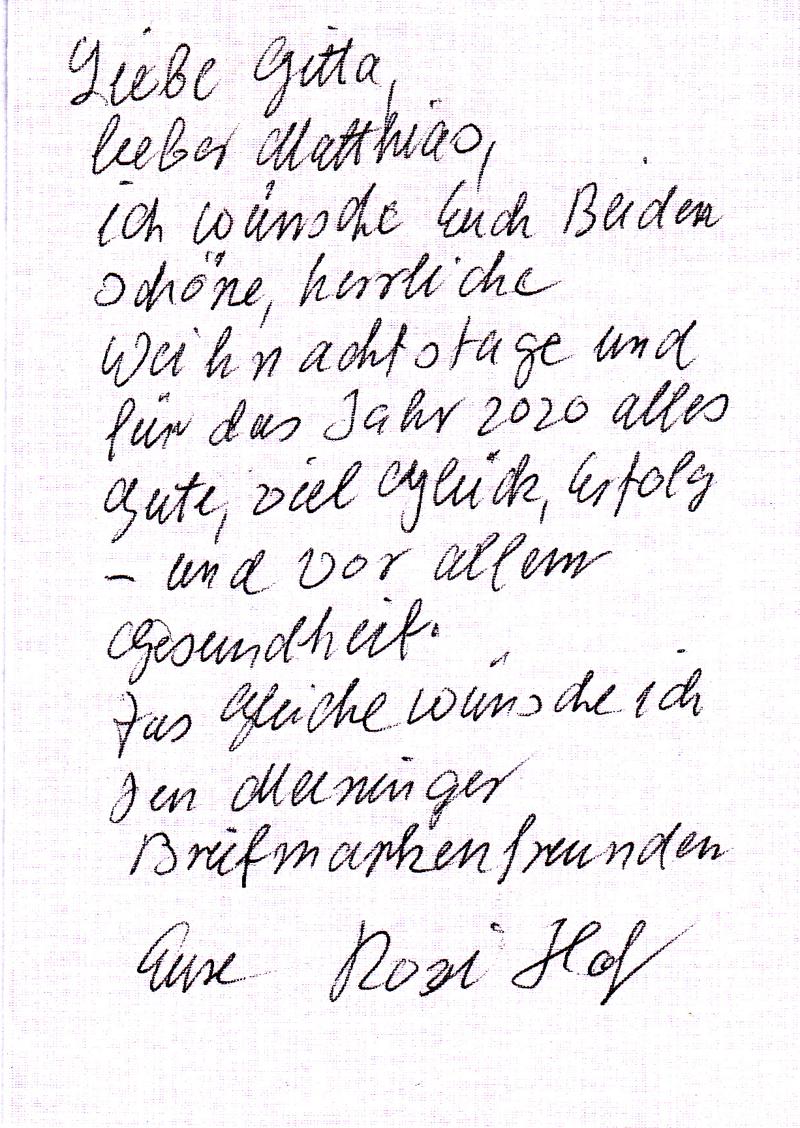 Liebe Gitta,
lieber Matthias,
ich wünsche Euch Beiden
schöne, herrliche
Weihnachtstage und
für das Jahr 2020 alles
Gute, viel Glück, Erfolg
– und vor allem
Gesundheit.
Das Gleiche wünsche ich
den Meininger
Briefmarkenfreunden
Eure Rosi Hof